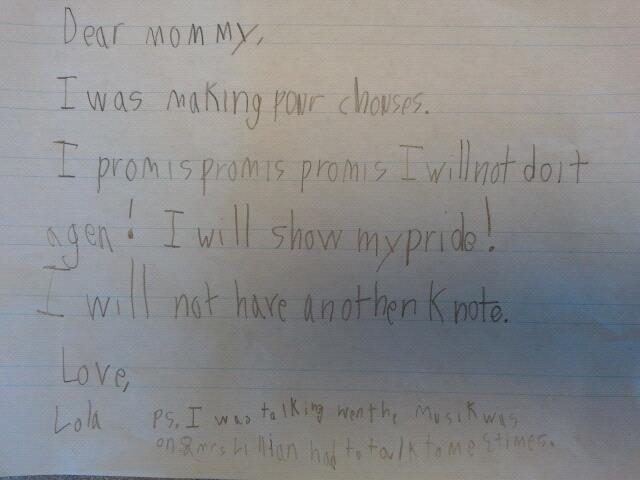 Dear mommy,
I was making pour chouses.
I promis promis promis I will not do it
agen! I will show my pride!
I will not have another K note.
Love,
Lola PS, I was talking wen the musik was
on & mrs Lillian had to talk to me 5 times.